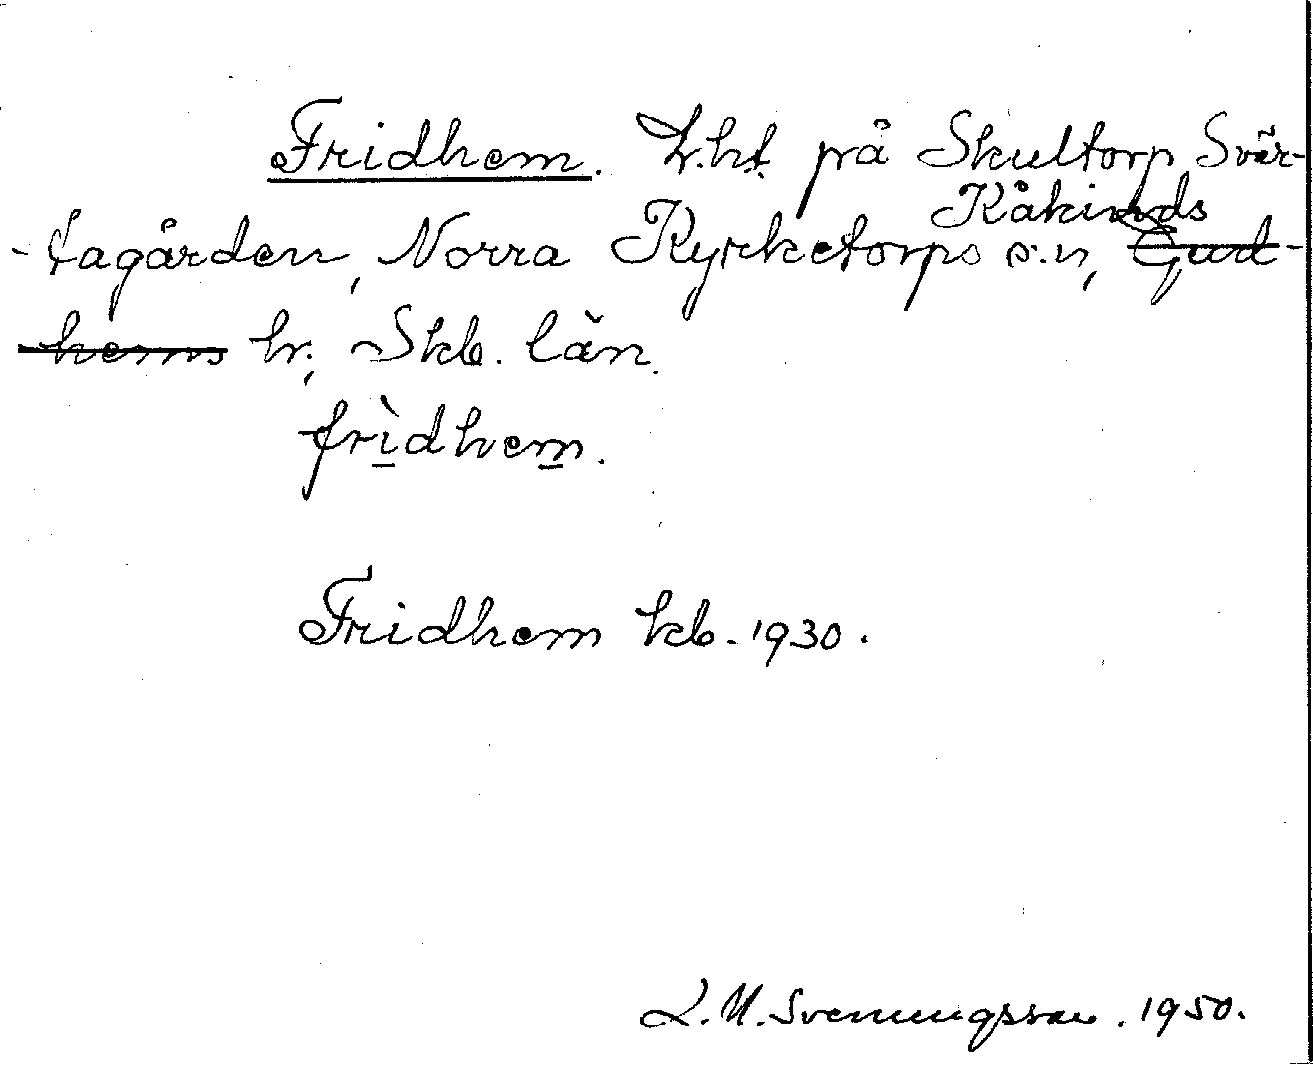 Fridhem. Lht. på Skultorp Svär-
Kåkinds
-tagården, Norra Kyrketorps s:n, Gud-
hems hr, Skb. län.
frìdhem.
Fridhem kb. 1930.
L. U. Svenungsson. 1950.